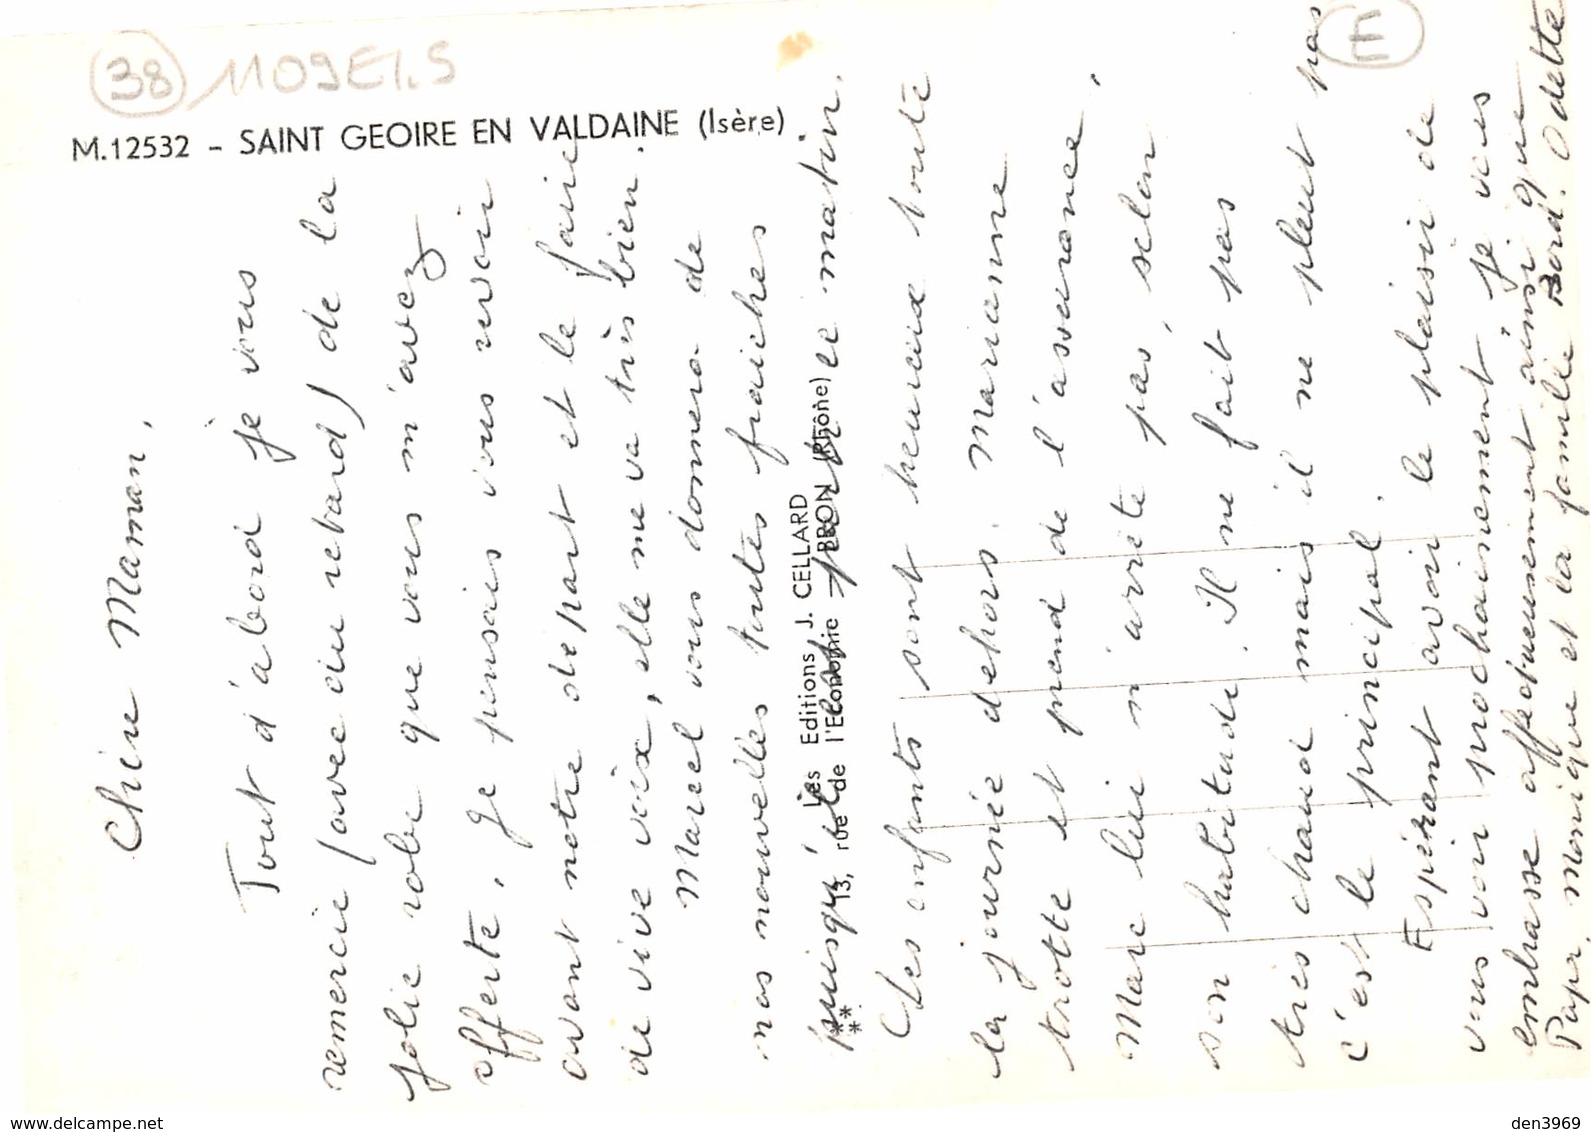 38 1109E1.S
E
M.12532 - SAINT GEOIRE EN VALDAINE (Isère)
Chère Maman,
Tout d'abord je vous
remercie (avec du retard) de la
jolie robe que vous m'avez
offerte. Je pensais vous revoir
avant notre départ et le faire
de vive voix, elle me va très bien.
Marcel vous donnera de
nos nouvelles toutes fraîches
puisqu'il est parti ce matin.
** Les Editions J. CELLARD
** 13, rue de l'Economie BRON (Rhône)
Les enfants sont heureux toute
la journée dehors. Marianne
trotte et prend de l'assurance,
Marc lui n'arrête pas, selon
son habitude. Il ne fait pas
très chaud mais il ne pleut pas
c'est le principal.
Espérant avoir le plaisir de
vous voir prochainement, je vous
embrasse affectueusement ainsi que
Papa, Monique et la famille Bord. Odette
www.delcampe.net
den3969